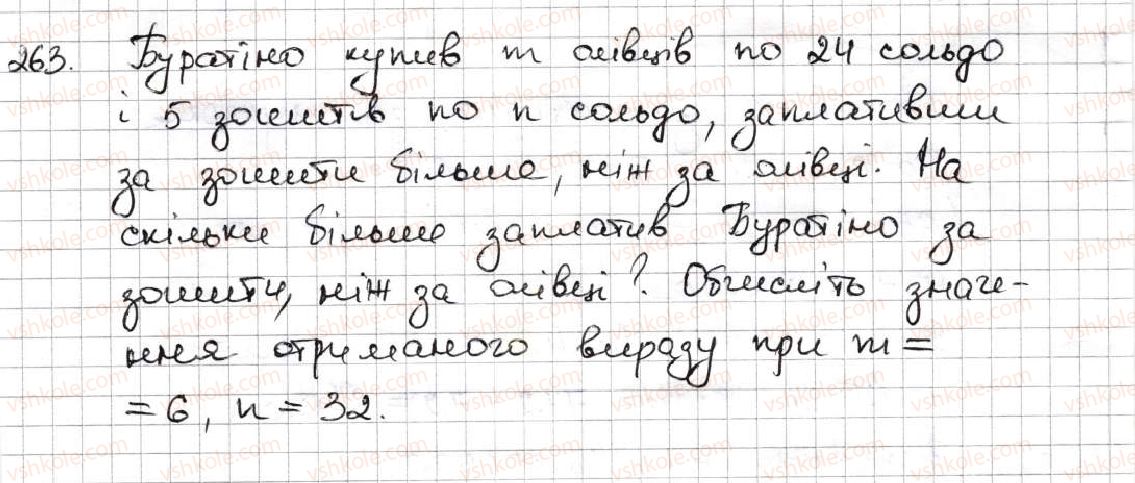 263. Буратіно купив m олівців по 24 сольдо
і 5 зошитів по n сольдо, заплативши
за зошити більше, ніж за олівці. На
скільки більше заплатив Буратіно за
зошити, ніж за олівці? Обчисліть значе-
ння отриманого виразу при m =
= 6, n = 32.